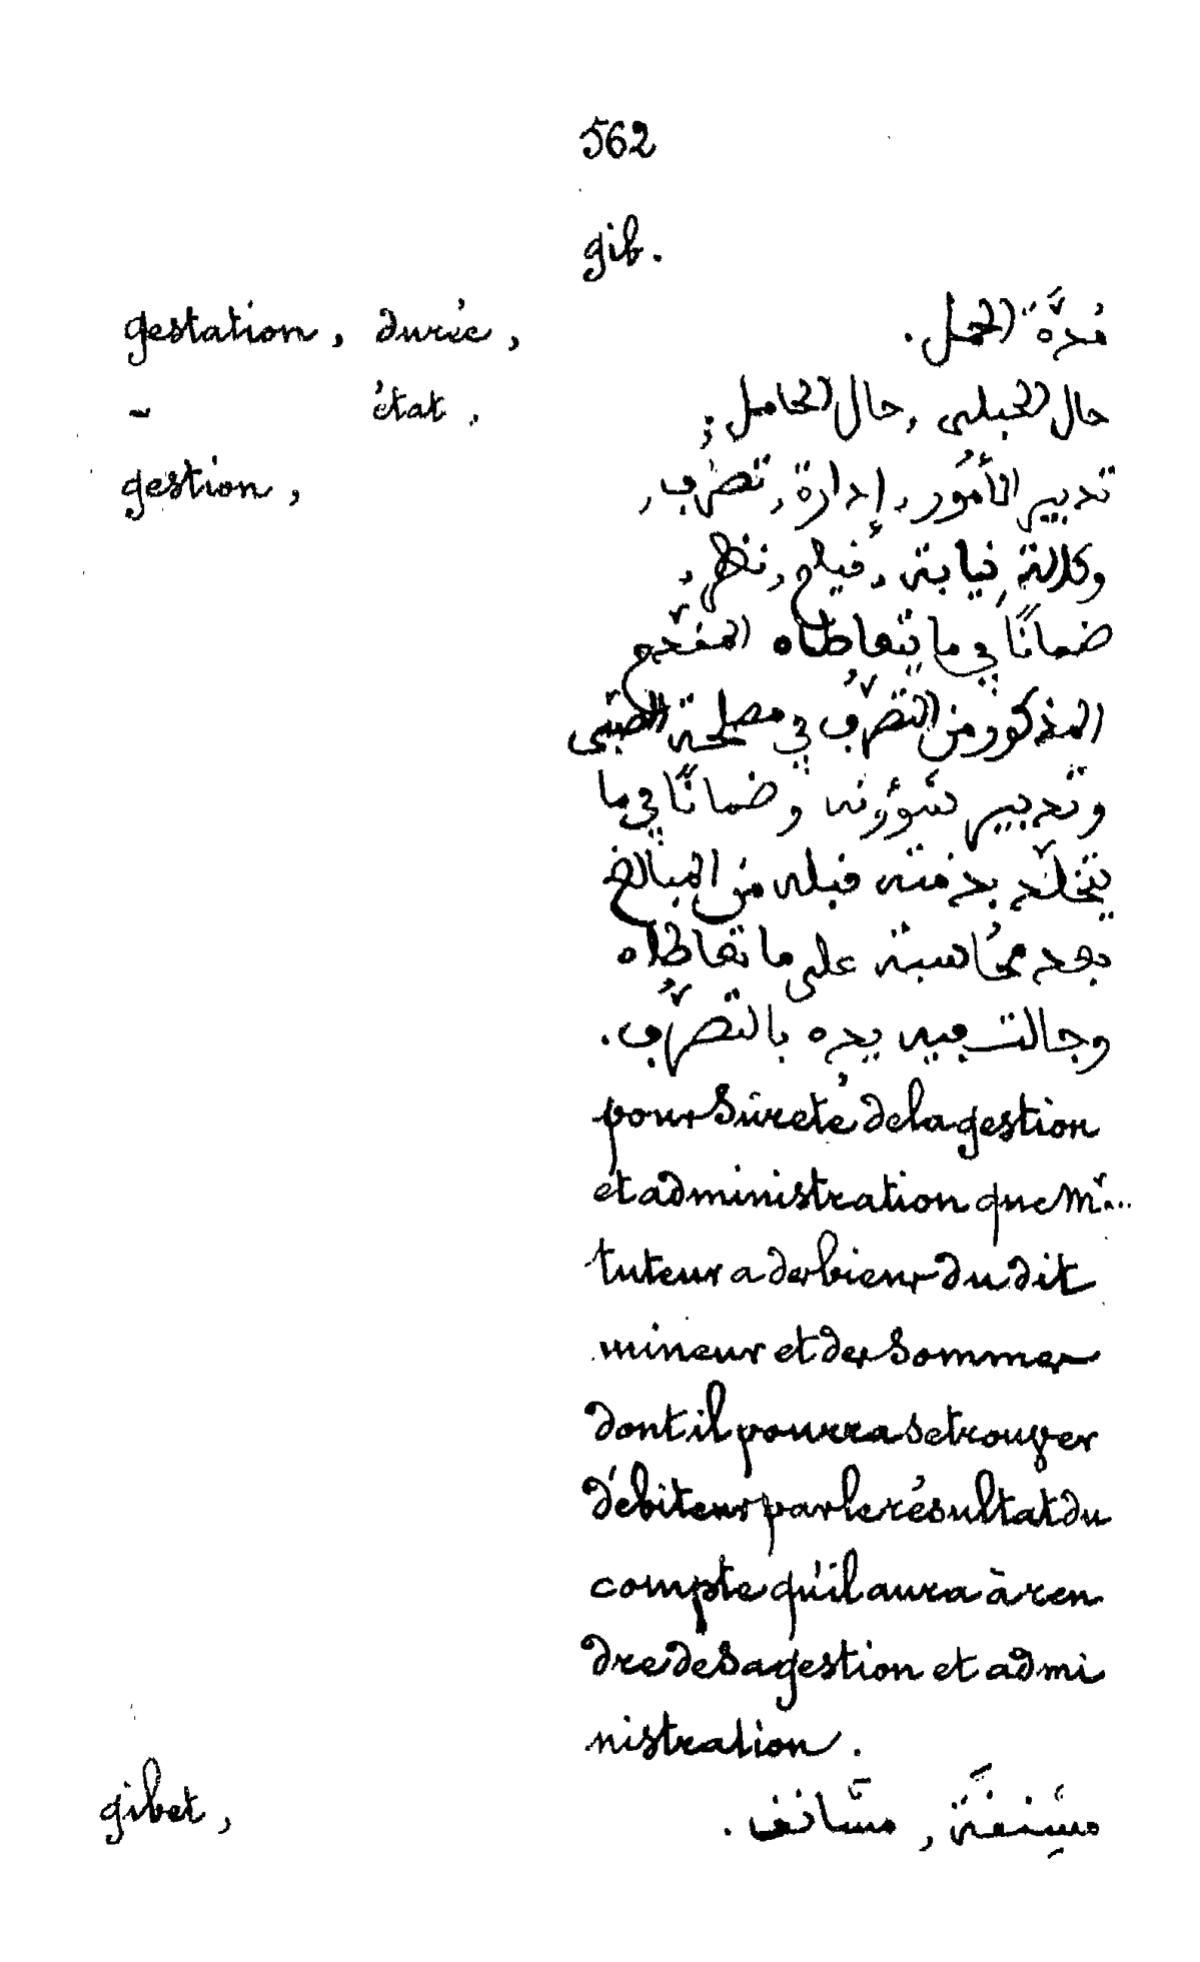 562
gib.
gestation, durée, مُدَّة الحمل.
- état. حال الحبلى, حال الحامل;
gestion, تدبير الأمُور, إدارة, تصرُّف,
وكالة, نيابة, قيام, نظر,
ضمانًا في ما يتعاطاه المقدّم
المذكور من التصرُّف في مصلحة الصبي
وتدبير شؤونه وضمانًا في ما
يتخلّد بذمته قبله من المبالغ
بعد محُاسبة على ما تعاطاه
وجالت فيه يده بالتصرُّف.
pour sûreté de la gestion
et administration que Mr...
tuteur a des biens du dit
mineur et des sommes
dont il pourra se trouver
débiteur par le résultat du
compte qu'il aura à ren
dre de sa gestion et admi
nistration.
gibet, مشنقة, مشانق.